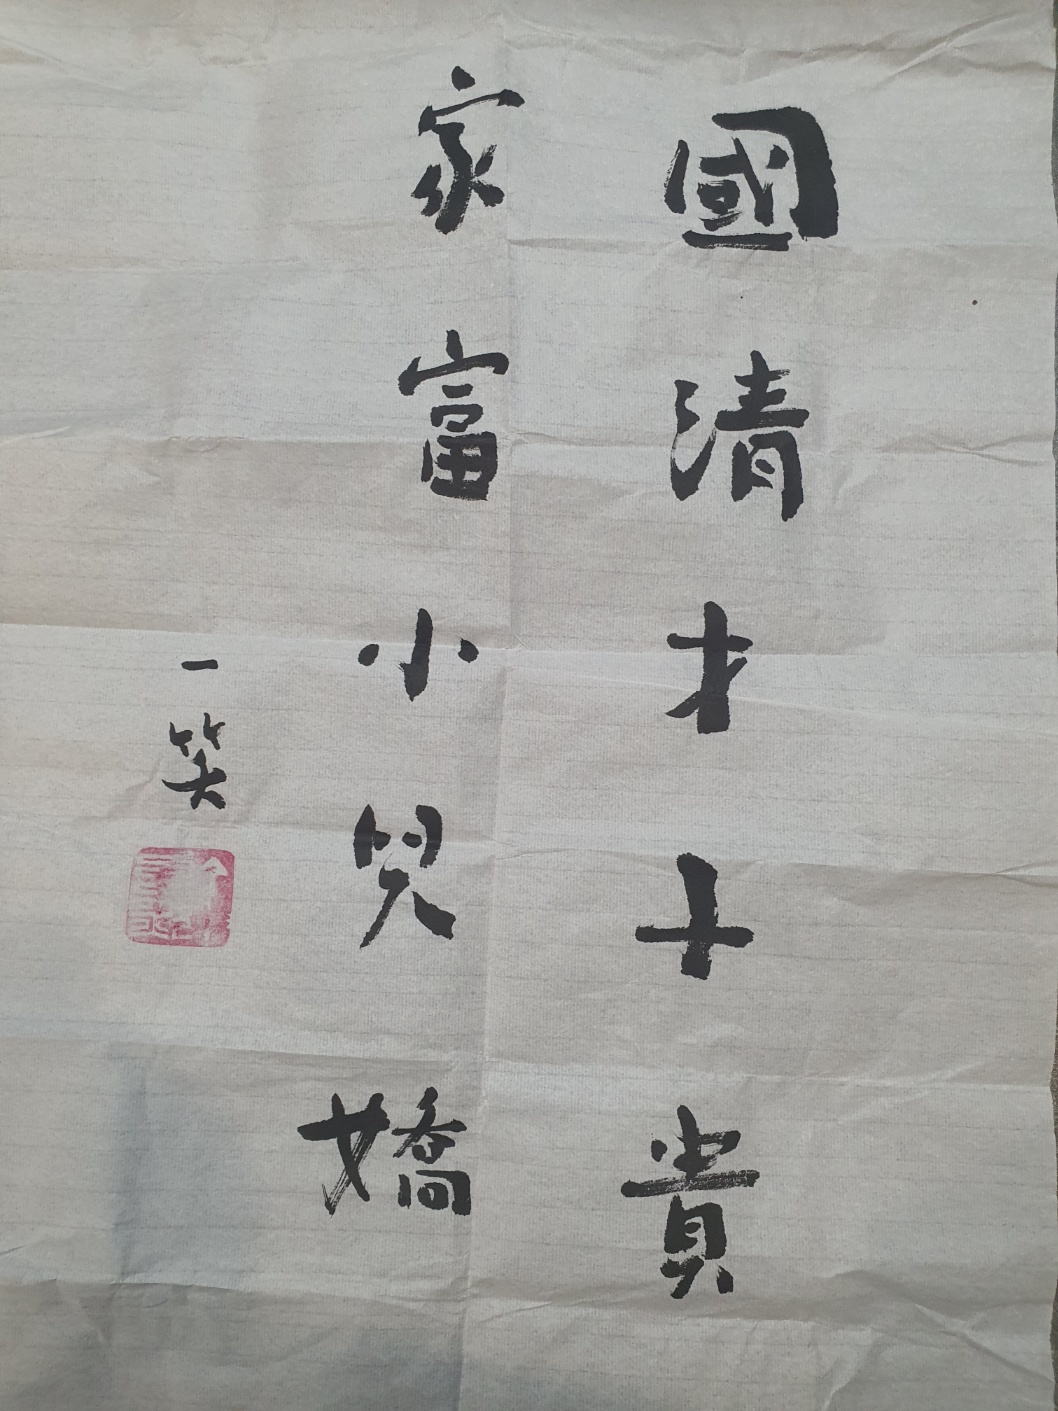 國清才子貴
家富小兒嬌
一笑